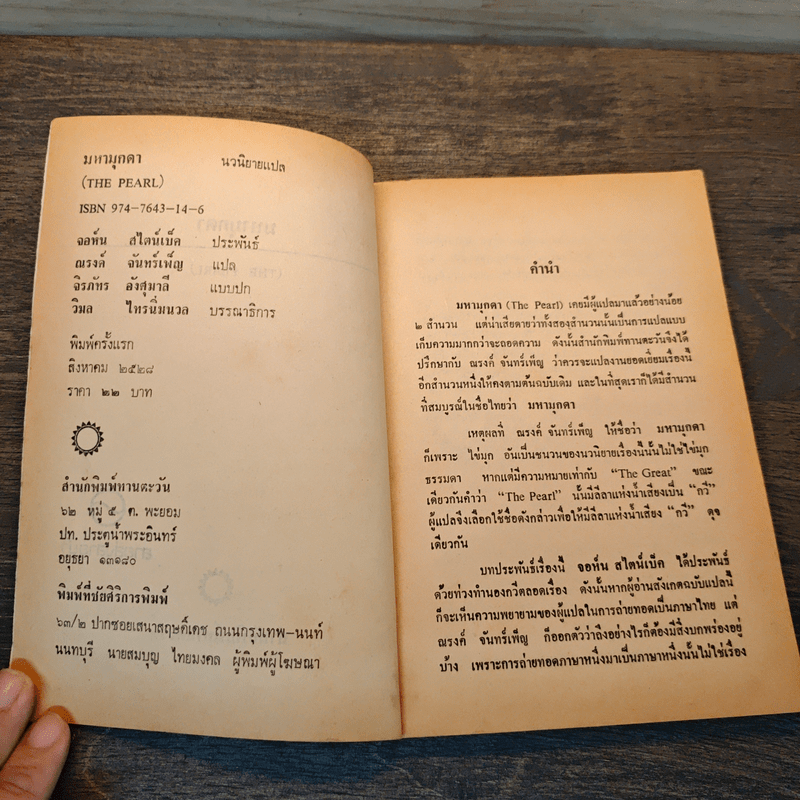 มหามุกดา นวนิยายแปล
(THE PEARL)
ISBN 974-7643-14-6
จอห์น สไตน์เบ็ค ประพันธ์
ณรงค์ จันทร์เพ็ญ แปล
จิรภัทร อังศุมาลี แบบปก
วิมล ไทรนิ่มนวล บรรณาธิการ
พิมพ์ครั้งแรก
สิงหาคม ๒๕๒๘
ราคา ๒๒ บาท
สำนักพิมพ์ทานตะวัน
๖๒ หมู่ ๕ ต. พะยอม
ปท. ประตูน้ำพระอินทร์
อยุธยา ๑๓๑๘๐
พิมพ์ที่ชัยศิริการพิมพ์
๖๓/๒ ปากซอยเสนาสฤษดิ์เดช ถนนกรุงเทพ-นนท์
นนทบุรี นายสมบุญ ไทยมงคล ผู้พิมพ์ผู้โฆษณา
คำนำ
มหามุกดา (The Pearl) เคยมีผู้แปลมาแล้วอย่างน้อย
๒ สำนวน แต่น่าเสียดายว่าทั้งสองสำนวนนั้นเป็นการแปลแบบ
เก็บความมากกว่าจะถอดความ ดังนั้นสำนักพิมพ์ทานตะวันจึงได้
ปรึกษากับ ณรงค์ จันทร์เพ็ญ ว่าควรจะแปลงานยอดเยี่ยมเรื่องนี้
อีกสำนวนหนึ่งให้คงตามต้นฉบับเดิม และในที่สุดเราก็ได้มีสำนวน
ที่สมบูรณ์ในชื่อไทยว่า มหามุกดา
เหตุผลที่ ณรงค์ จันทร์เพ็ญ ให้ชื่อว่า มหามุกดา
ก็เพราะ ไข่มุก อันเป็นชนวนของนวนิยายเรื่องนี้นั้นไม่ใช่ไข่มุก
ธรรมดา หากแต่มีความหมายเท่ากับ “The Great” ขณะ
เดียวกันคำว่า “The Pearl” นั้นมีลีลาแห่งน้ำเสียงเป็น “กวี”
ผู้แปลจึงเลือกใช้ชื่อดังกล่าวเพื่อให้มีลีลาแห่งน้ำเสียง “กวี” ดุจ
เดียวกัน
บทประพันธ์เรื่องนี้ จอห์น สไตน์เบ็ค ได้ประพันธ์
ด้วยท่วงทำนองกวีตลอดเรื่อง ดังนั้นหากผู้อ่านสังเกตฉบับแปลนี้
ก็จะเห็นความพยายามของผู้แปลในการถ่ายทอดเป็นภาษาไทย แต่
ณรงค์ จันทร์เพ็ญ ก็ออกตัวว่าถึงอย่างไรก็ต้องมีสิ่งบกพร่องอยู่
บ้าง เพราะการถ่ายทอดภาษาหนึ่งมาเป็นภาษาหนึ่งนั้นไม่ใช่เรื่อง